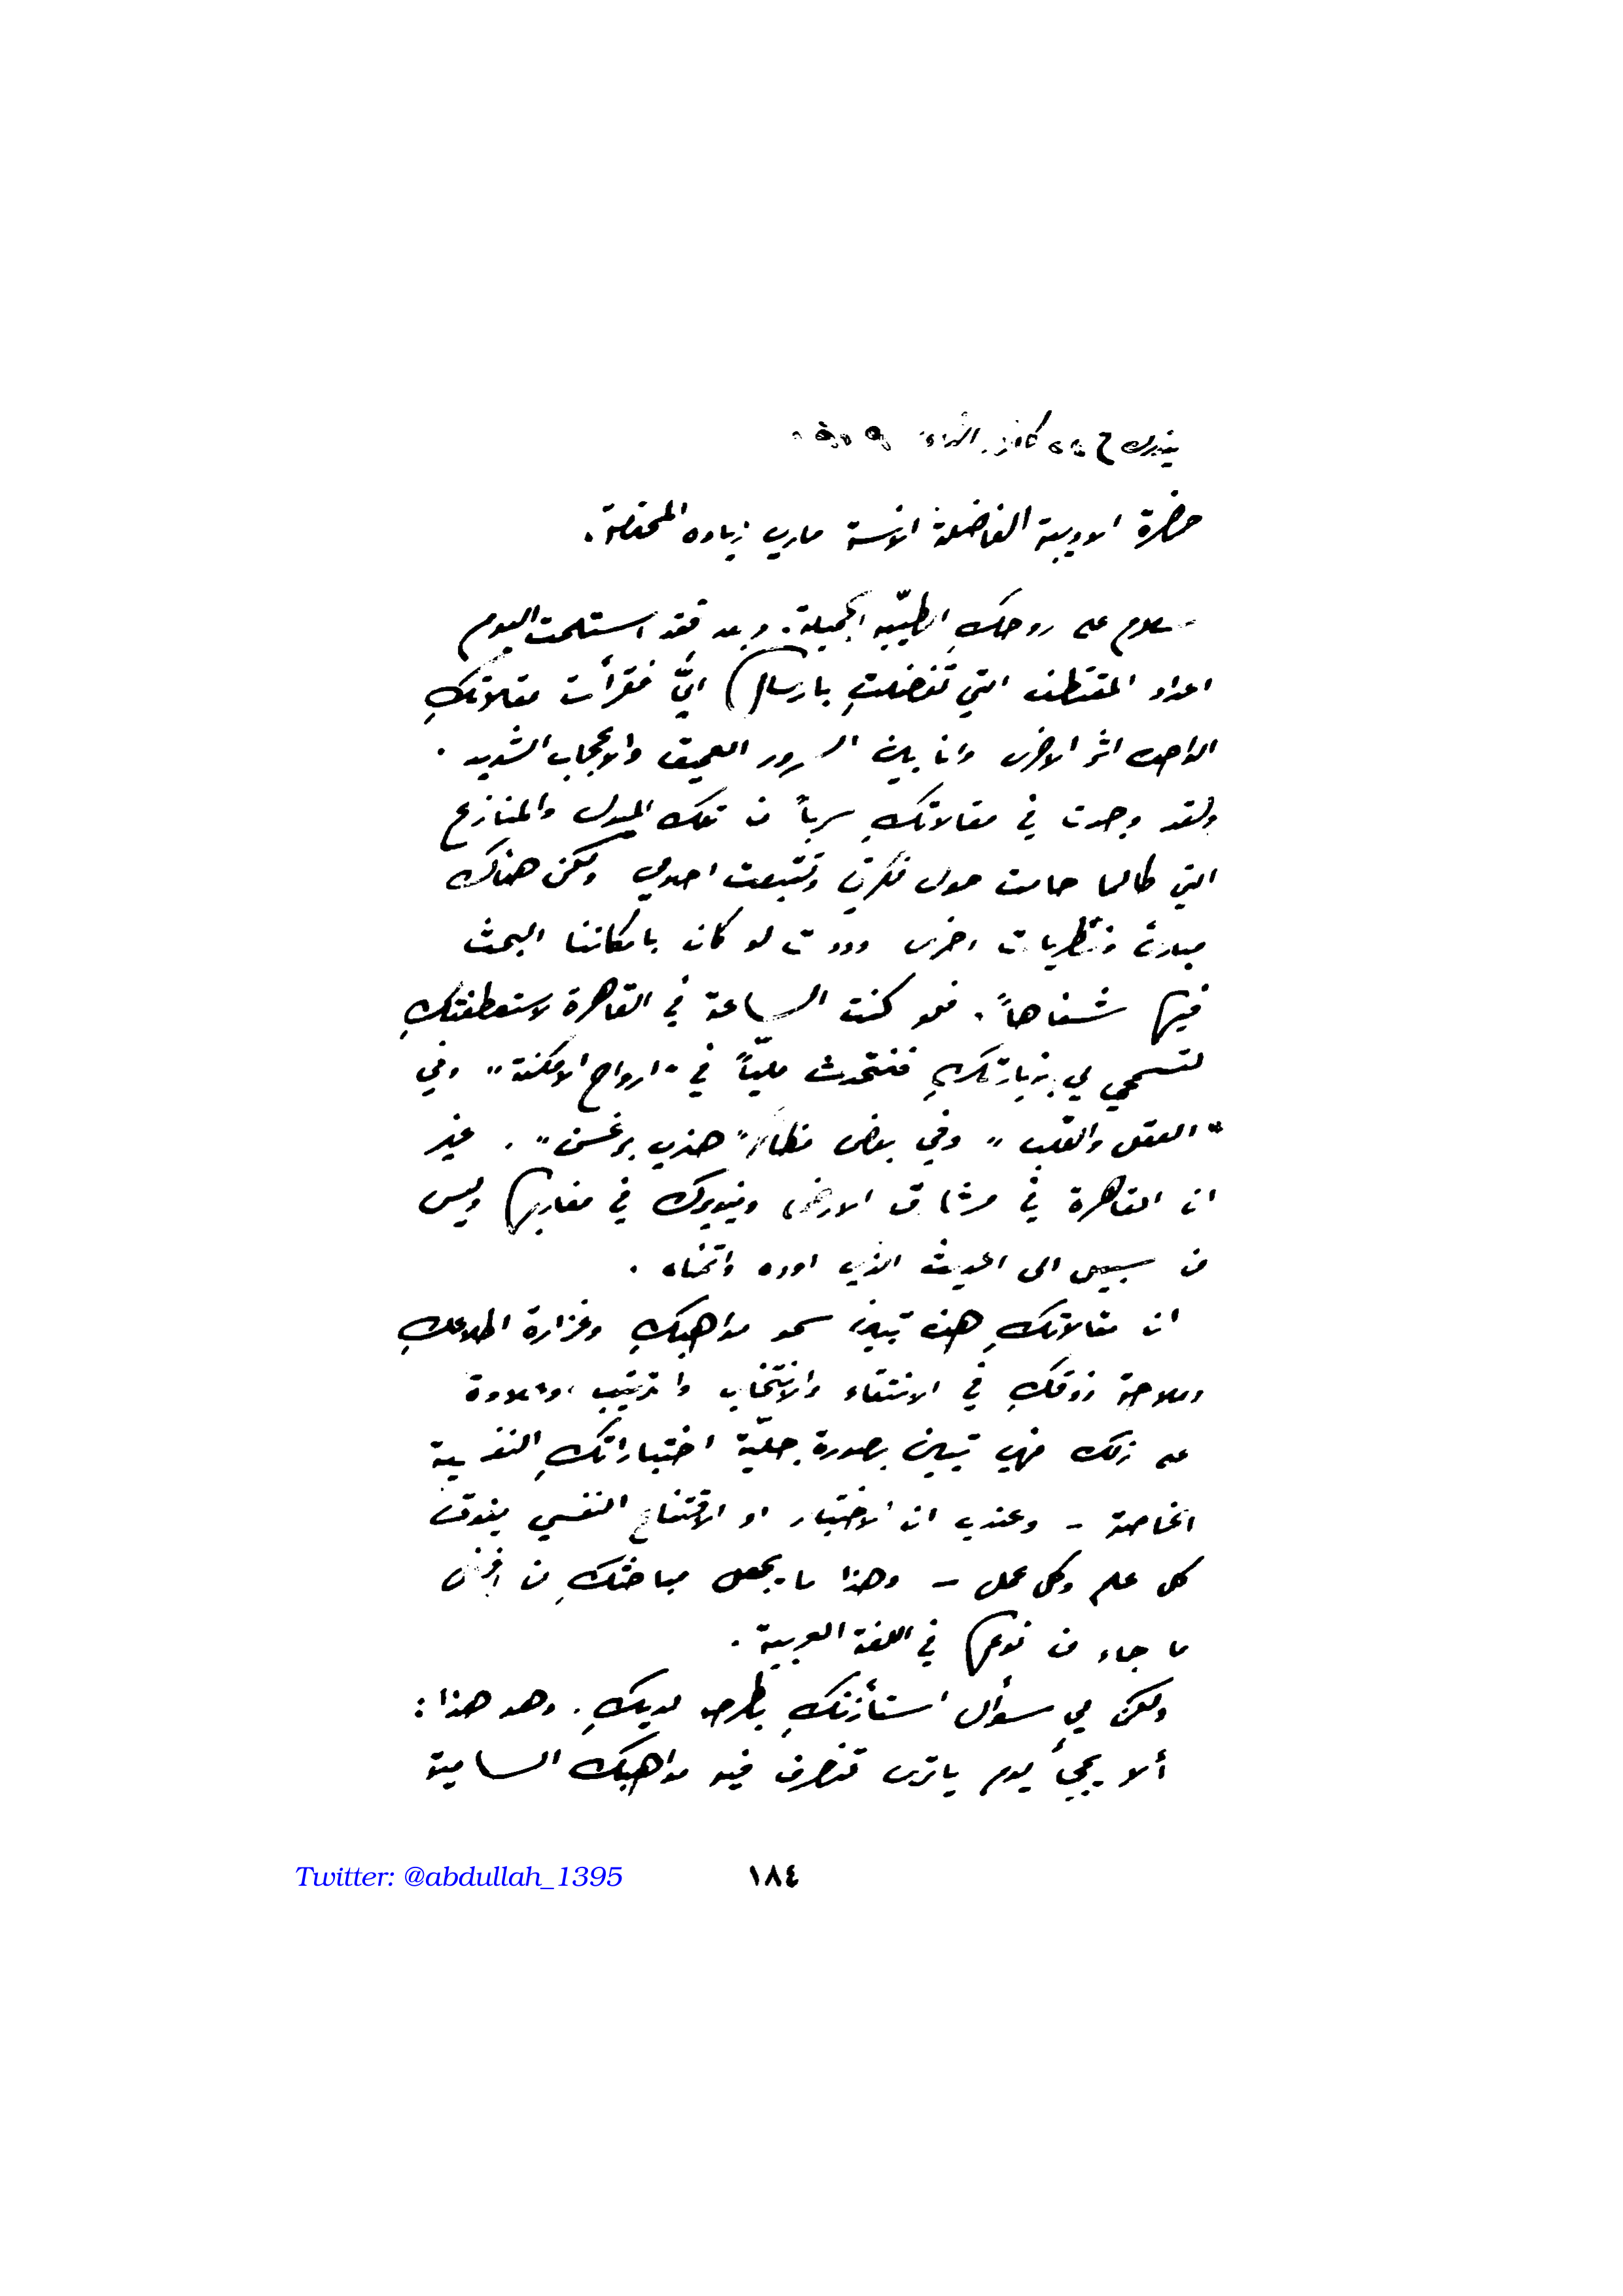 نيويورك في كانون الثاني
حضرة الاديبة الفاضلة الآنسة ماري زياده المحترمة.
سلام على روحكِ الطيّبة الجميلة. وبعد فقد استلمت اليوم
اعداد المقتطف التي تفضلتِ بارسالها اليَّ فقرأت مقالاتكِ
الواحدة اثر الاخرى وانا بين السرور العميق والاعجاب الشديد.
ولقد وجدت في مقالاتكِ سرباً من تلك الميول والمنازع
التي طالما حامت حول فكرتي وتتبعت احلامي ولكن هناك
مبادئ ونظريات اخرى وددت لو كان بامكاننا البحث
فيها شفاهاً. فلو كنت الساعة في القاهرة لاستعطفتكِ
لتسمحي لي بزيارتكِ فنتحدث مليّاً في "ارواح الامكنة" وفي
"العقل والقلب" وفي بعض مظاهر "هنري برغسن". غير
ان القاهرة في مشارق الارض ونيويورك في مغاربها وليس
من سبيل الى الحديث الذي اوده واتمناه.
ان مقالاتكِ هذه تبين سمو مواهبكِ وغزارة اطلاعكِ
وملاحة ذوقكِ في الانتقاء والانتخاب والترتيب، وعلاوة
على ذلك فهي تبين بصورة جليّة اختباراتكِ النفسية
الخاصة - وعندي ان الاختبار او الاقتناع النفسي يفوق
كل علم وكل عمل - وهذا ما يجعل مباحثكِ من افضل
ما جاء من نوعها في اللغة العربية.
ولكن لي سؤال استأذنكِ بطرحه لديكِ. وهو هذا:
ألا يجيءُ يوم يا ترى تنصرف فيه مواهبك السامية
Twitter: @abdullah_1395
١٨٤